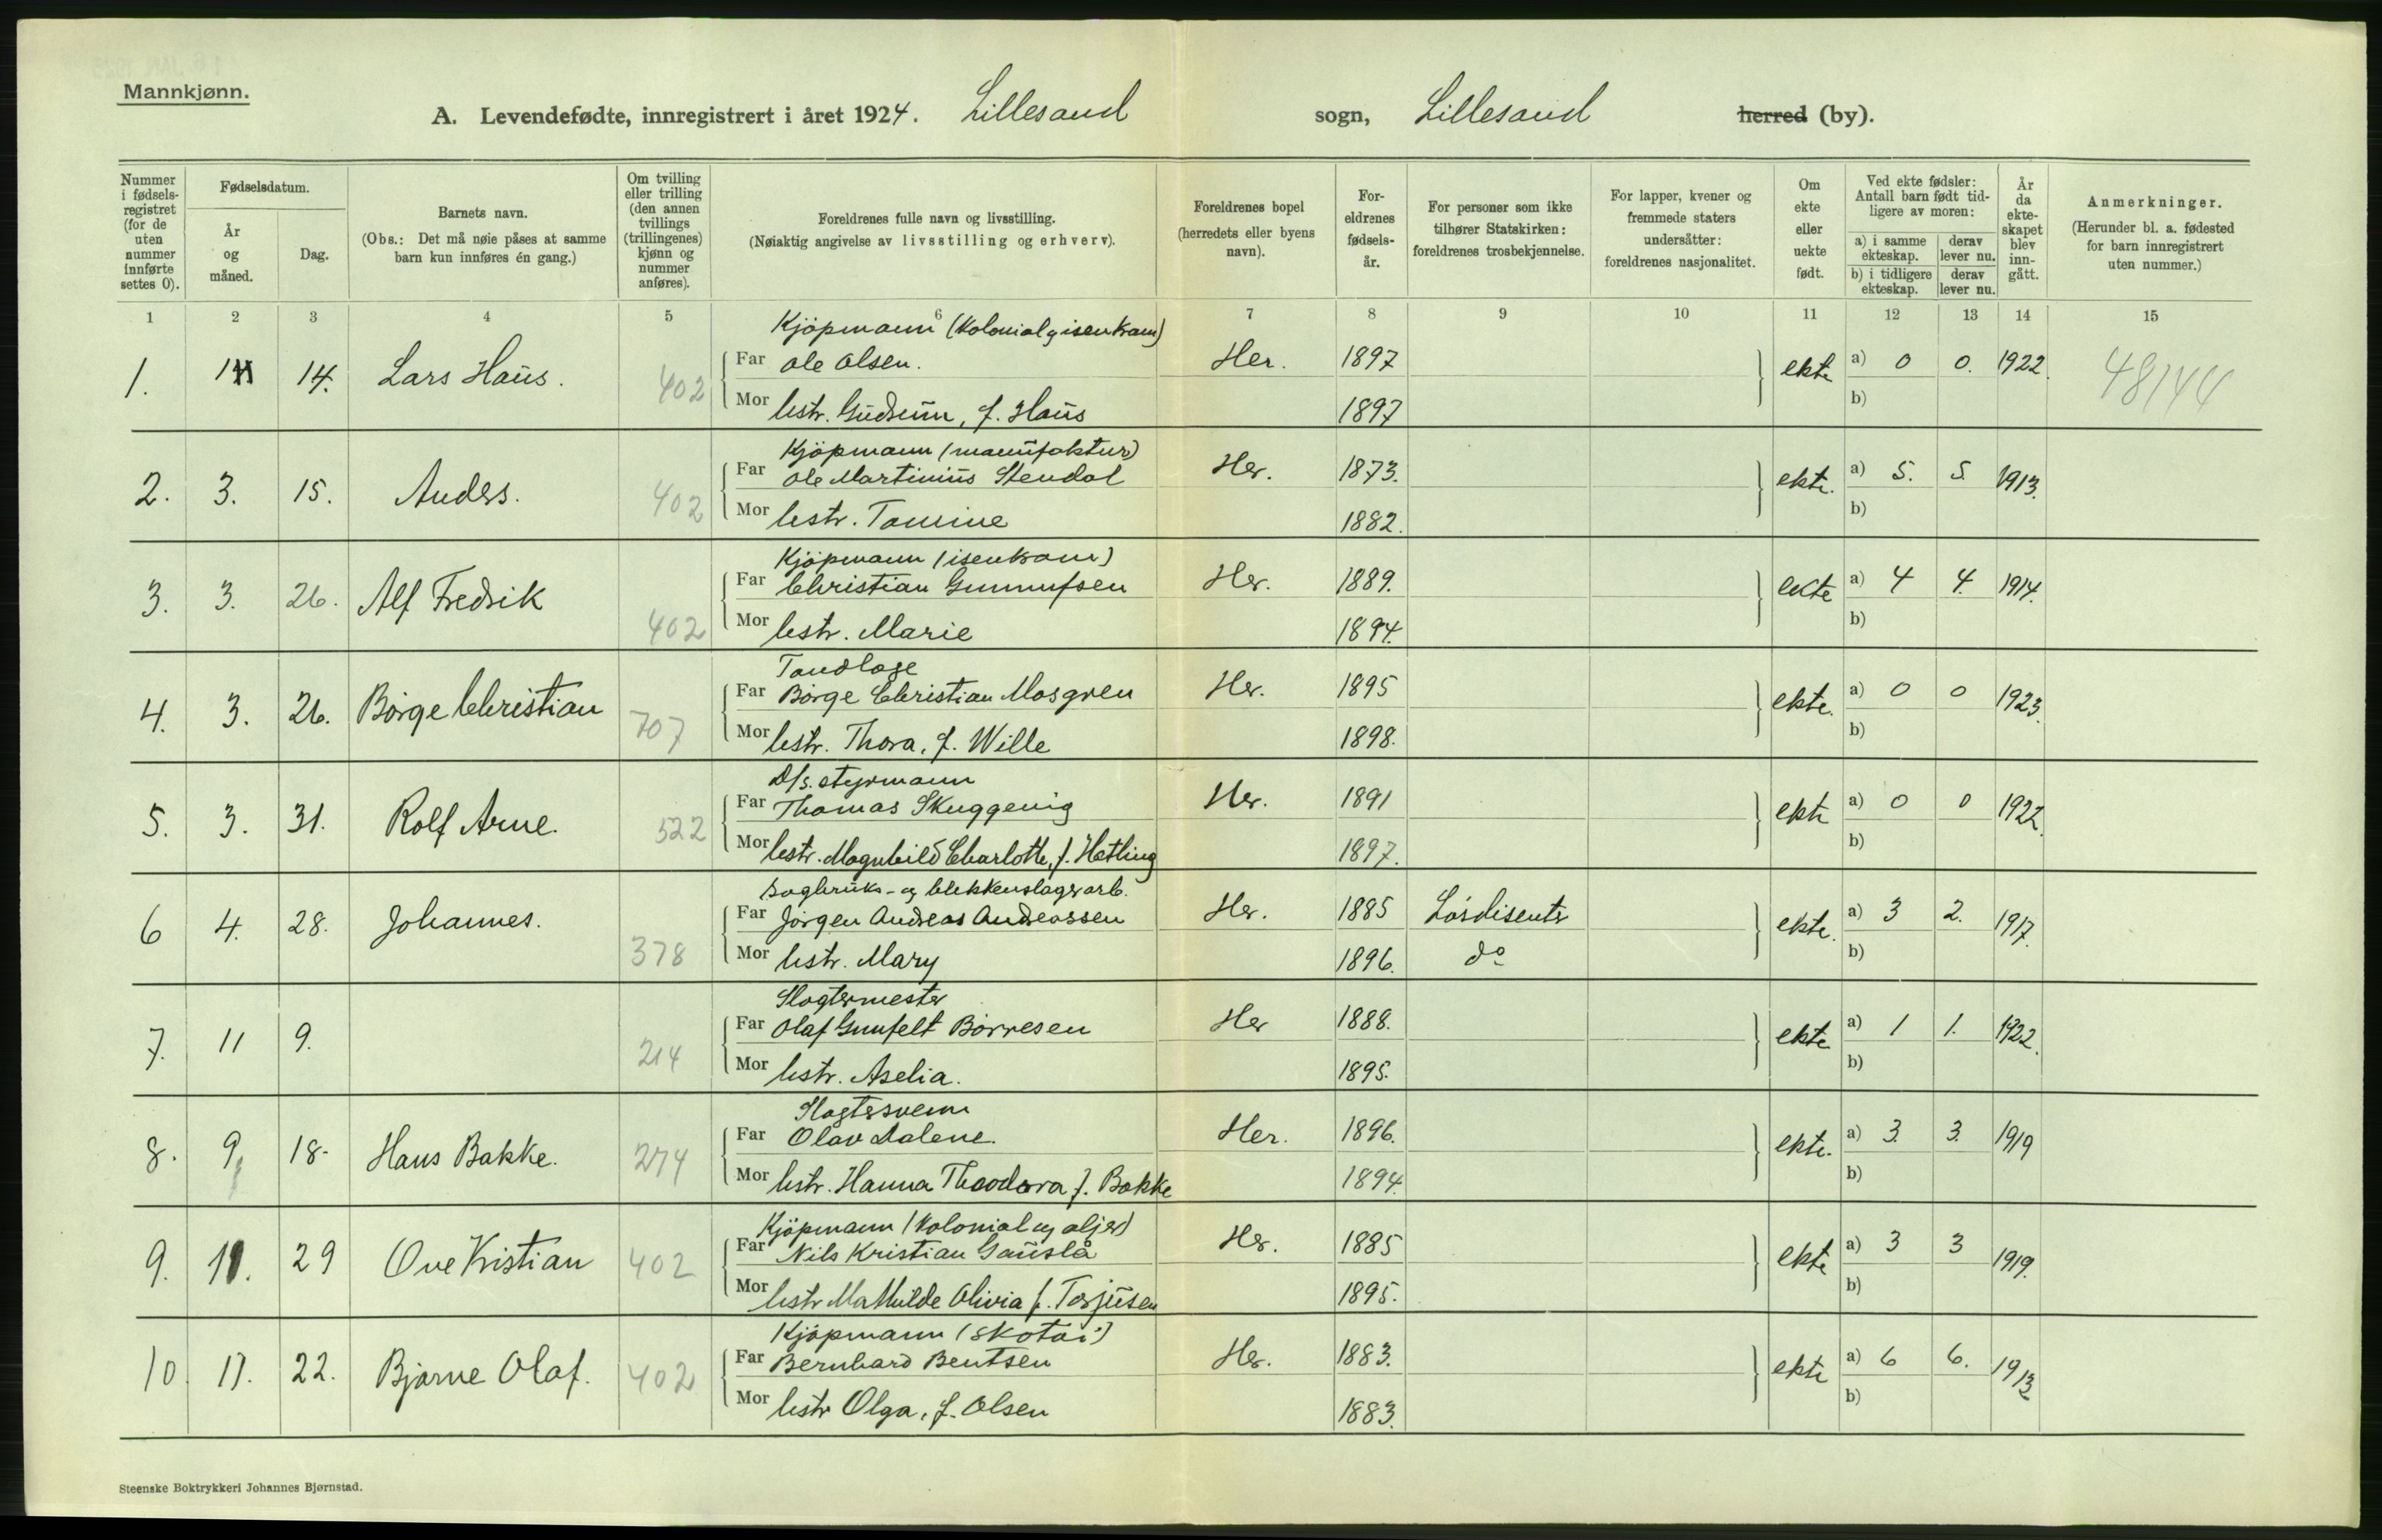 Mannkjønn.
A. Levendefødte, innregistrert i året 1924. Lillesand sogn, Lillesand herred (by).
Nummer i fødsels-registret (for de uten nummer innførte settes 0).
Fødselsdatum.
År og måned.
Dag.
Barnets navn.
(Obs.: Det må nøie påses at samme barn kun innføres én gang.)
Om tvilling eller trilling (den annen tvillings (trillingenes) kjønn og nummer anføres).
Foreldrenes fulle navn og livsstilling.
(Nøiaktig angivelse av livsstilling og erhverv).
Foreldrenes bopel (herredets eller byens navn).
For-eldrenes fødsels-år.
For personer som ikke tilhører Statskirken: foreldrenes trosbekjennelse.
For lapper, kvener og fremmede staters undersåtter: foreldrenes nasjonalitet.
Om ekte eller uekte født.
Ved ekte fødsler: Antall barn født tid-ligere av moren:
a) i samme ekteskap. derav lever nu.
b) i tidligere ekteskap. derav lever nu.
År da ekte-skapet blev inn-gått.
Anmerkninger.
(Herunder bl. a. fødested for barn innregistrert uten nummer.)
1 2 3 4 5 6 7 8 9 10 11 12 13 14 15
Kjöpmann (Kolonial og isenkram)
1. 14. Lars Haüs. 402 Far Ole Olsen. Her. 1897 ekte a) 0 0. 1922. 48144
Mor hstr. Güdrün, f. Haüs 1897 b)
Kjöpmann (manüfaktur)
2. 3. 15. Anders. 402 Far Ole Martiniüs Stendal Her. 1873. ekte. a) 5. 5. 1913.
Mor hstr. Tomine 1882. b)
Kjöpmann (isenkram)
3. 3. 26. Alf Fredrik 402 Far Christian Gunnufsen Her. 1889. ekte a) 4 4. 1914.
Mor hstr. Marie 1894. b)
Tandlæge
4. 3. 26. Börge Christian 707 Far Börge Christian Mosgren Her. 1895 ekte. a) 0 0 1923.
Mor hstr. Thora, f. Wille 1898. b)
D/s. styrmann
5. 3. 31. Rolf Arne. 522 Far Thomas Skuggevig Her. 1891 ekte a) 0 0 1922.
Mor hstr. Magnhild Charlotte, f. Hetling 1897. b)
Sagbrüks- og blekkenslagerarb.
6 4. 28. Johannes. 378 Far Jörgen Andreas Andreassen Her. 1885 ekte. a) 3 2. 1917.
Mor hstr. Mary 1896. do b)
Slagtermester
7. 11 9. 214 Far Olaf Gunfelt Börresen Her 1888. ekte a) 1 1. 1922.
Mor hstr. Aselia. 1895. b)
Slagtersvenn
8. 9 18. Hans Bakke. 274 Far Olav Dalene. Her. 1896. ekte. a) 3. 3. 1919
Mor hstr. Hanna Theodora f. Bakke 1894. b)
Kjöpmann (Kolonial og oljer)
9. 11. 29 Ove Kristian 402 Far Nils Kristian Gaüslå Her. 1885 ekte a) 3 3 1919.
Mor hstr Mathilde Olivia f. Torjüsen 1895. b)
Kjöpmann (skotöi)
10. 11. 22. Bjarne Olaf. 402 Far Bernhard Bentsen Her. 1883. ekte a) 6 6. 1913
Mor hstr Olga, f. Olsen 1883. b)
Steenske Boktrykkeri Johannes Bjørnstad.